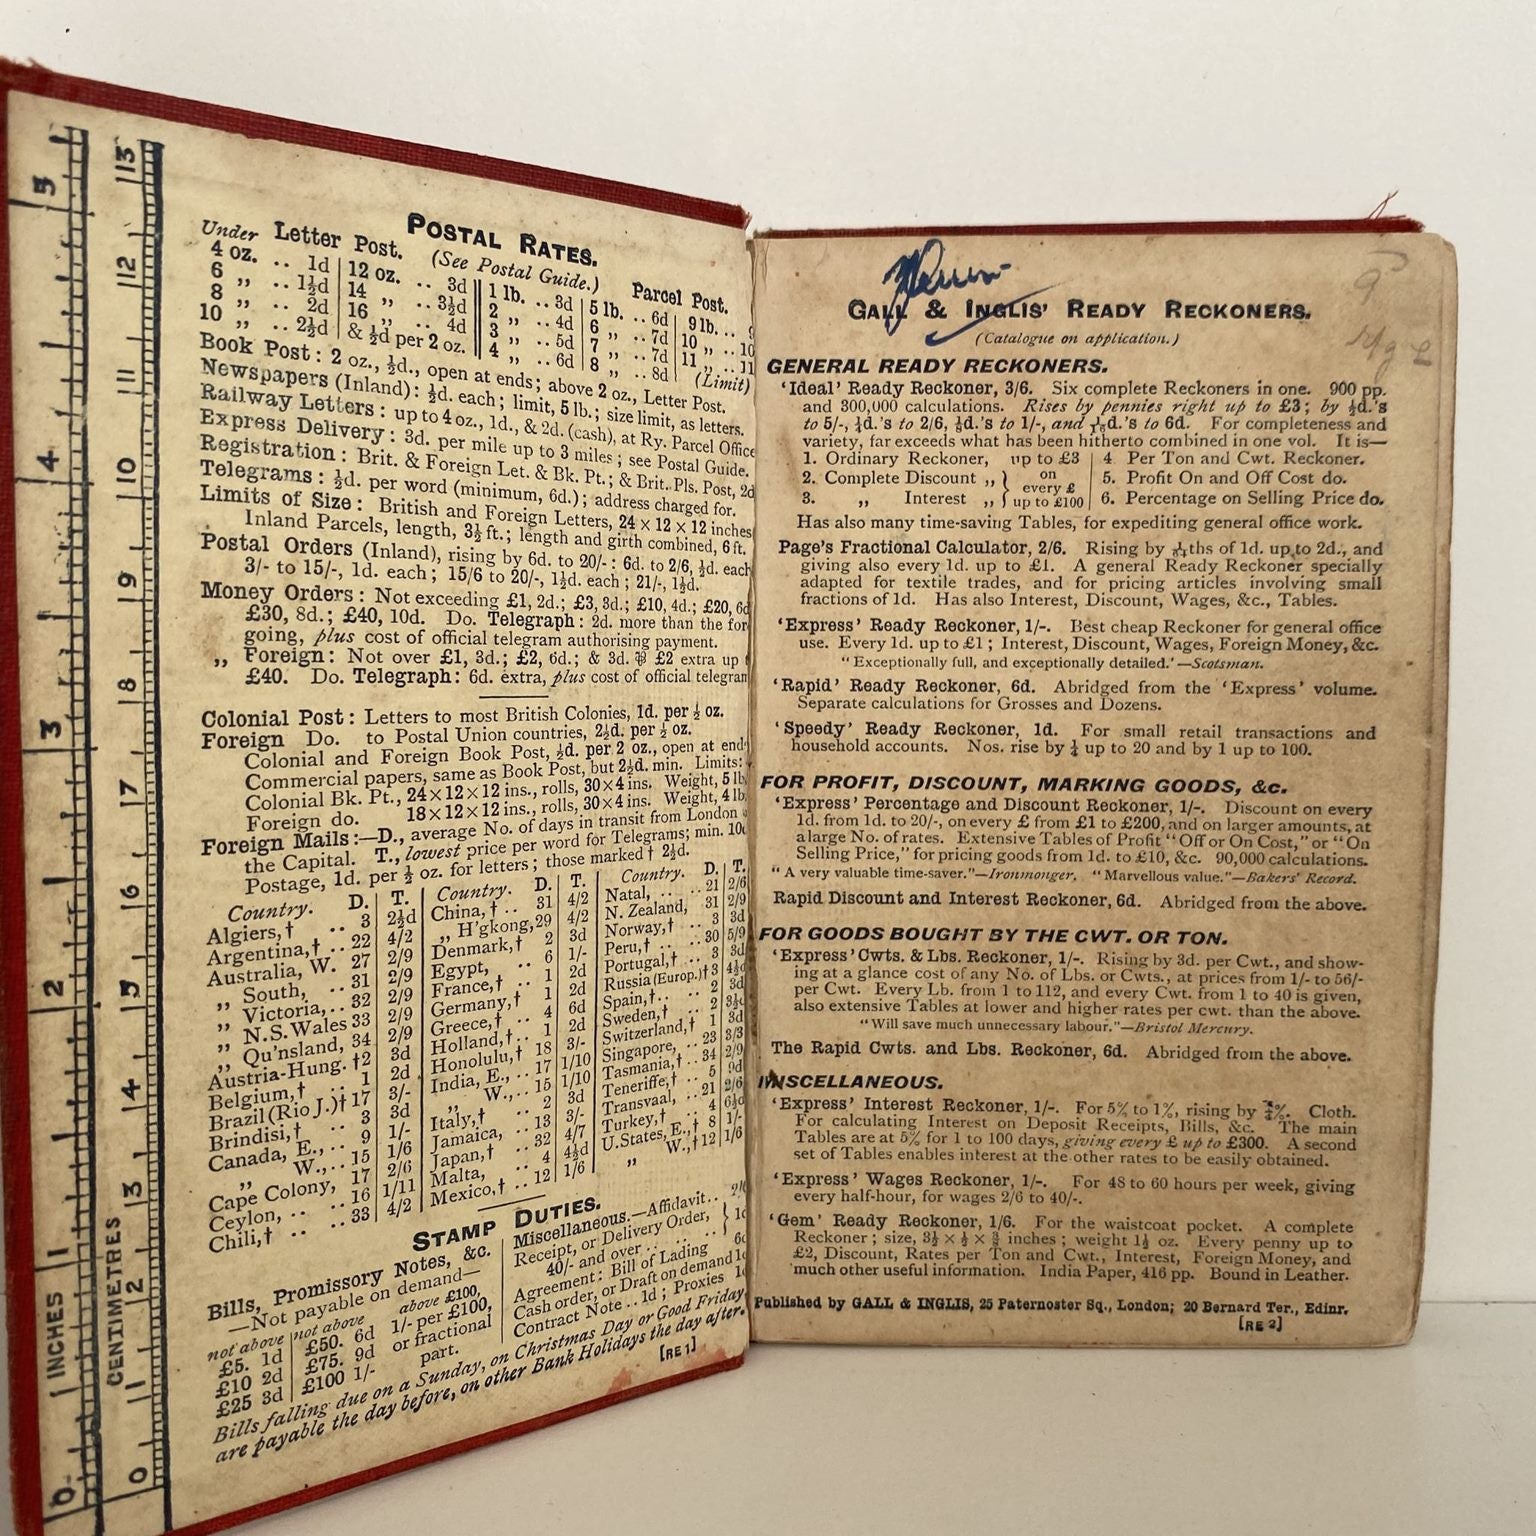 INCHES
0 1 2 3 4 5
CENTIMETRES
0 1 2 3 4 5 6 7 8 9 10 11 12 13
POSTAL RATES.
(See Postal Guide.)
Under Letter Post. Parcel Post.
4 oz. .. 1d | 12 oz. .. 3d || 1 lb. .. 3d | 5 lb. .. 6d | 9 lb. ..
6 „ .. 1½d | 14 „ .. 3½d || 2 „ .. 4d | 6 „ .. 7d | 10 „ .. 10
8 „ .. 2d | 16 „ .. 4d || 3 „ .. 5d | 7 „ .. 7d | 11 „ .. 11
10 „ .. 2½d | & ½d per 2 oz. || 4 „ .. 6d | 8 „ .. 8d | (Limit)
Book Post: 2 oz., ½d., open at ends; above 2 oz., Letter Post.
Newspapers (Inland): ½d. each; limit, 5 lb.; size limit, as letters.
Railway Letters: up to 4 oz., 1d., & 2d. (cash), at Ry. Parcel Office
Express Delivery: 3d. per mile up to 3 miles; see Postal Guide.
Registration: Brit. & Foreign Let. & Bk. Pt.; & Brit. Pls. Post, 2d
Telegrams: ½d. per word (minimum, 6d.); address charged for.
Limits of Size: British and Foreign Letters, 24 × 12 × 12 inches
Inland Parcels, length, 3½ ft.; length and girth combined, 6 ft.
Postal Orders (Inland), rising by 6d. to 20/-: 6d. to 2/6, ½d. each
3/- to 15/-, 1d. each; 15/6 to 20/-, 1½d. each; 21/-, 1½d.
Money Orders: Not exceeding £1, 2d.; £3, 3d.; £10, 4d.; £20, 6d
£30, 8d.; £40, 10d. Do. Telegraph: 2d. more than the for
going, plus cost of official telegram authorising payment.
„ Foreign: Not over £1, 3d.; £2, 6d.; & 3d. ⅌ £2 extra up
£40. Do. Telegraph: 6d. extra, plus cost of official telegram
Colonial Post: Letters to most British Colonies, 1d. per ½ oz.
Foreign Do. to Postal Union countries, 2½d. per ½ oz.
Colonial and Foreign Book Post, ½d. per 2 oz., open at end
Commercial papers, same as Book Post, but 2½d. min. Limits:
Colonial Bk. Pt., 24×12×12 ins., rolls, 30×4 ins. Weight, 5 lb
Foreign do. 18×12×12 ins., rolls, 30×4 ins. Weight, 4 lb
Foreign Mails:—D., average No. of days in transit from London
the Capital. T., lowest price per word for Telegrams; min. 10d
Postage, 1d. per ½ oz. for letters; those marked † 2½d.
Country. D. T. | Country. D. T. | Country. D. T.
Algiers,† .. 3 2½d | China,† .. 31 4/2 | Natal, .. .. 21 2/6
Argentina,† .. 22 4/2 | „ H'gkong, 29 4/2 | N. Zealand, 31 2/9
Australia, W. 27 2/9 | Denmark,† 2 3d | Norway,† 3 3d
„ South, .. 31 2/9 | Egypt, .. 6 1/- | Peru,† .. .. 30 5/9
„ Victoria, .. 32 2/9 | France,† .. 1 2d | Portugal,† .. 3 3d
„ N.S.Wales 33 2/9 | Germany,† 1 2d | Russia (Europ.)† 3 4½d
„ Qu'nsland, 34 2/9 | Greece,† .. 4 6d | Spain,† .. 2 3d
Austria-Hung. †2 3d | Holland,† .. 1 2d | Sweden,† .. 2 3½d
Belgium,† .. 1 2d | Honolulu,† 18 3/- | Switzerland,† 1 3d
Brazil (Rio J.)† 17 3/- | India, E., .. 17 1/10 | Singapore, .. 23 3/3
Brindisi,† .. 3 3d | „ W., .. 15 1/10 | Tasmania,† .. 34 2/9
Canada, E., .. 9 1/- | Italy,† .. 2 3d | Teneriffe,† .. 5 9d
„ W., .. 15 1/6 | Jamaica, .. 13 3/- | Transvaal, .. 21 2/6
Cape Colony, 17 2/6 | Japan,† .. 32 4/7 | Turkey,† .. 4 6½d
Ceylon, .. .. 16 1/11 | Malta, .. 4 4½d | U.States, E.,† 8 1/-
Chili,† .. .. 33 4/2 | Mexico,† .. 12 1/6 | „ W.,† 12 1/6
STAMP DUTIES.
Bills, Promissory Notes, &c.
—Not payable on demand—
not above | not above above £100,
£5. 1d | £50. 6d 1/- per £100,
£10 2d | £75. 9d or fractional
£25 3d | £100 1/- part.
Miscellaneous.—Affidavit..
Receipt, or Delivery Order, }
40/- and over .. .. .. } 1d
Agreement: Bill of Lading 6d
Cash order, or Draft on demand 1d
Contract Note .. 1d; Proxies 1d
Bills falling due on a Sunday, on Christmas Day or Good Friday
are payable the day before, on other Bank Holidays the day after.
[RE 1]
GALL & INGLIS' READY RECKONERS.
(Catalogue on application.)
GENERAL READY RECKONERS.
'Ideal' Ready Reckoner, 3/6. Six complete Reckoners in one. 900 pp.
and 300,000 calculations. Rises by pennies right up to £3; by ½d.'s
to 5/-, ¼d.'s to 2/6, ⅛d.'s to 1/-, and 1/16d.'s to 6d. For completeness and
variety, far exceeds what has been hitherto combined in one vol. It is—
1. Ordinary Reckoner, up to £3 | 4 Per Ton and Cwt. Reckoner.
2. Complete Discount „ } on every £ | 5. Profit On and Off Cost do.
3. „ Interest „ } up to £100 | 6. Percentage on Selling Price do.
Has also many time-saving Tables, for expediting general office work.
Page's Fractional Calculator, 2/6. Rising by ths of 1d. up to 2d., and
giving also every 1d. up to £1. A general Ready Reckoner specially
adapted for textile trades, and for pricing articles involving small
fractions of 1d. Has also Interest, Discount, Wages, &c., Tables.
'Express' Ready Reckoner, 1/-. Best cheap Reckoner for general office
use. Every 1d. up to £1; Interest, Discount, Wages, Foreign Money, &c.
"Exceptionally full, and exceptionally detailed.'—Scotsman.
'Rapid' Ready Reckoner, 6d. Abridged from the 'Express' volume.
Separate calculations for Grosses and Dozens.
'Speedy' Ready Reckoner, 1d. For small retail transactions and
household accounts. Nos. rise by ¼ up to 20 and by 1 up to 100.
FOR PROFIT, DISCOUNT, MARKING GOODS, &c.
'Express' Percentage and Discount Reckoner, 1/-. Discount on every
1d. from 1d. to 20/-, on every £ from £1 to £200, and on larger amounts, at
a large No. of rates. Extensive Tables of Profit "Off or On Cost," or "On
Selling Price," for pricing goods from 1d. to £10, &c. 90,000 calculations.
"A very valuable time-saver."—Ironmonger. "Marvellous value."—Bakers' Record.
Rapid Discount and Interest Reckoner, 6d. Abridged from the above.
FOR GOODS BOUGHT BY THE CWT. OR TON.
'Express' Cwts. & Lbs. Reckoner, 1/-. Rising by 3d. per Cwt., and show-
ing at a glance cost of any No. of Lbs. or Cwts., at prices from 1/- to 56/-
per Cwt. Every Lb. from 1 to 112, and every Cwt. from 1 to 40 is given,
also extensive Tables at lower and higher rates per cwt. than the above.
"Will save much unnecessary labour."—Bristol Mercury.
The Rapid Cwts. and Lbs. Reckoner, 6d. Abridged from the above.
MISCELLANEOUS.
'Express' Interest Reckoner, 1/-. For 5% to 1%, rising by ¼%. Cloth.
For calculating Interest on Deposit Receipts, Bills, &c. The main
Tables are at 5% for 1 to 100 days, giving every £ up to £300. A second
set of Tables enables interest at the other rates to be easily obtained.
'Express' Wages Reckoner, 1/-. For 48 to 60 hours per week, giving
every half-hour, for wages 2/6 to 40/-.
'Gem' Ready Reckoner, 1/6. For the waistcoat pocket. A complete
Reckoner; size, 3½ × ½ × ⅜ inches; weight 1½ oz. Every penny up to
£2, Discount, Rates per Ton and Cwt., Interest, Foreign Money, and
much other useful information. India Paper, 416 pp. Bound in Leather.
Published by GALL & INGLIS, 25 Paternoster Sq., London; 20 Bernard Ter., Edinr.
[RE 2]